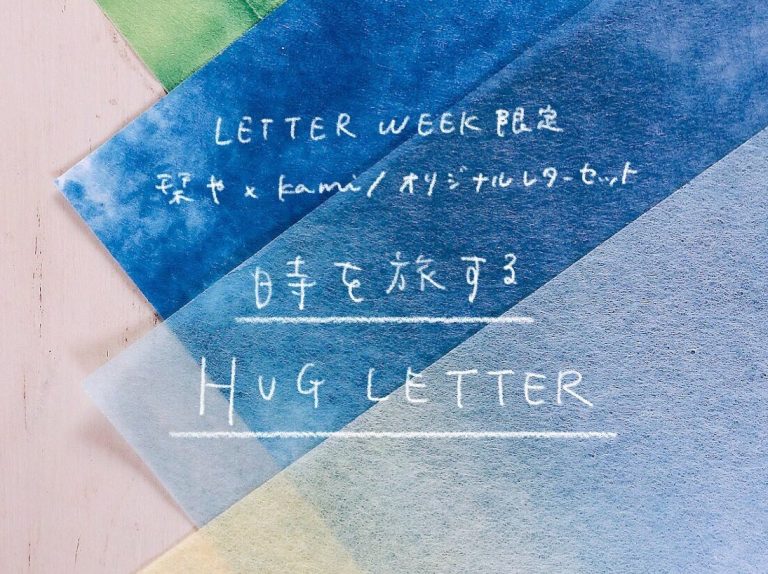 LETTER WEEK 限定
栞や x kami/ オリジナルレターセット
時を旅する
HUG LETTER